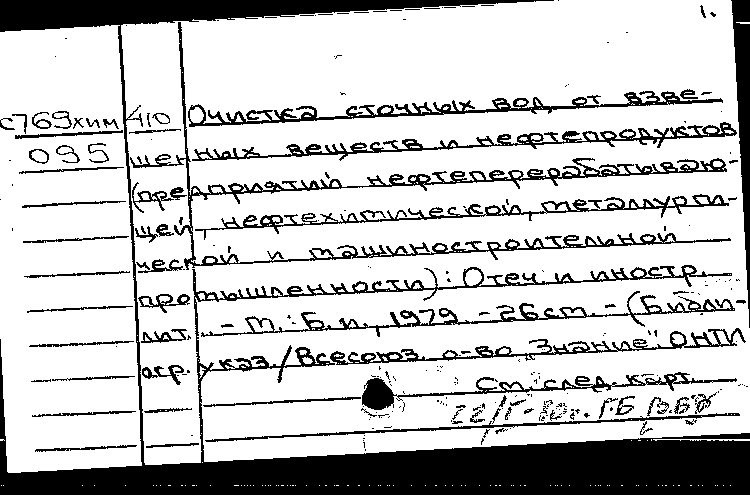 1.
С769хим 410 Очистка сточных вод от взве-
095 шенных веществ и нефтепродуктов
(предприятий нефтеперерабатываю-
щей, нефтехимической, металлурги-
ческой и машиностроительной
промышленности): Отеч. и иностр.
лит. .. - М.: Б.и., 1979. - 26 ст. - (Библи-
огр. указ. / Всесоюз. о-во „Знание". ОНТИ
См. след. карт.
22/I-80г. ГБ